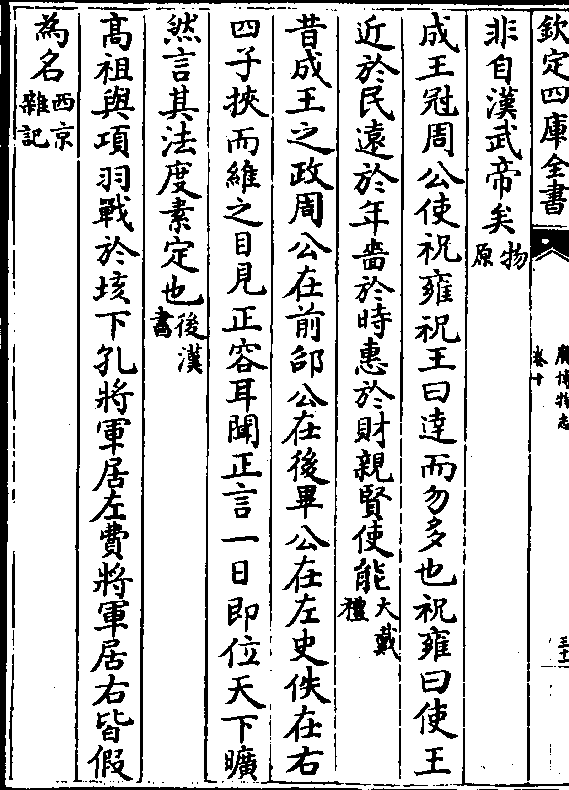 欽定四庫全書
廣博物志
卷十
三十二
非自漢武帝矣物原
成王冠周公使祝雍祝王曰達而勿多也祝雍曰使王
近於民遠於年嗇於時惠於財親賢使能大戴禮
昔成王之政周公在前邵公在後畢公在左史佚在右
四子挾而維之目見正容耳聞正言一日即位天下曠
然言其法度素定也後漢書
高祖與項羽戰於垓下孔將軍居左費將軍居右皆假
為名西京雜記